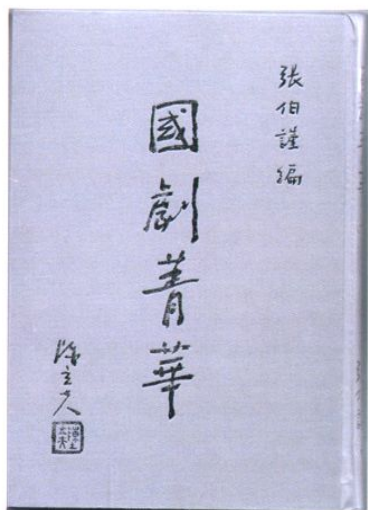 張伯謹編
國劇菁華
陳立夫